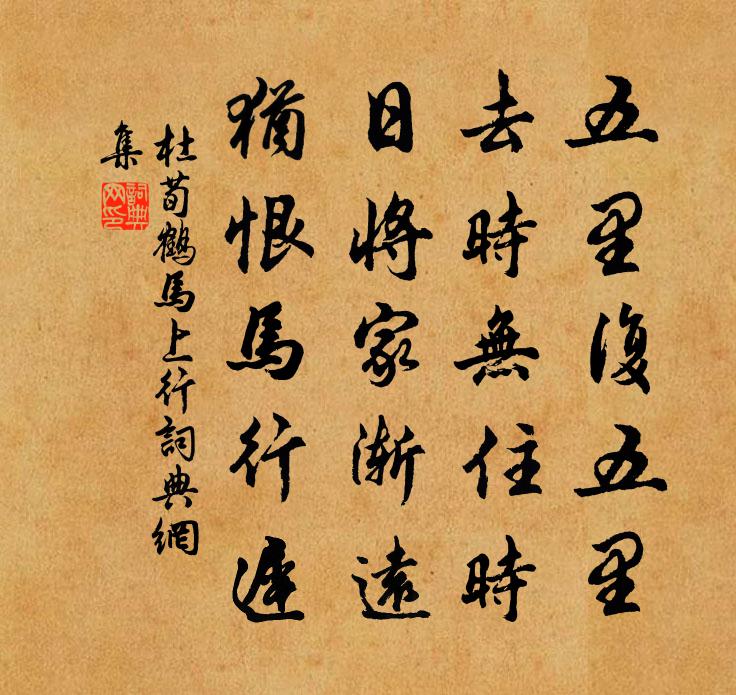 五里復五里
去時無住時
日將家漸遠
猶恨馬行遲
杜荀鶴馬上行詞典網
集
詞典
网印